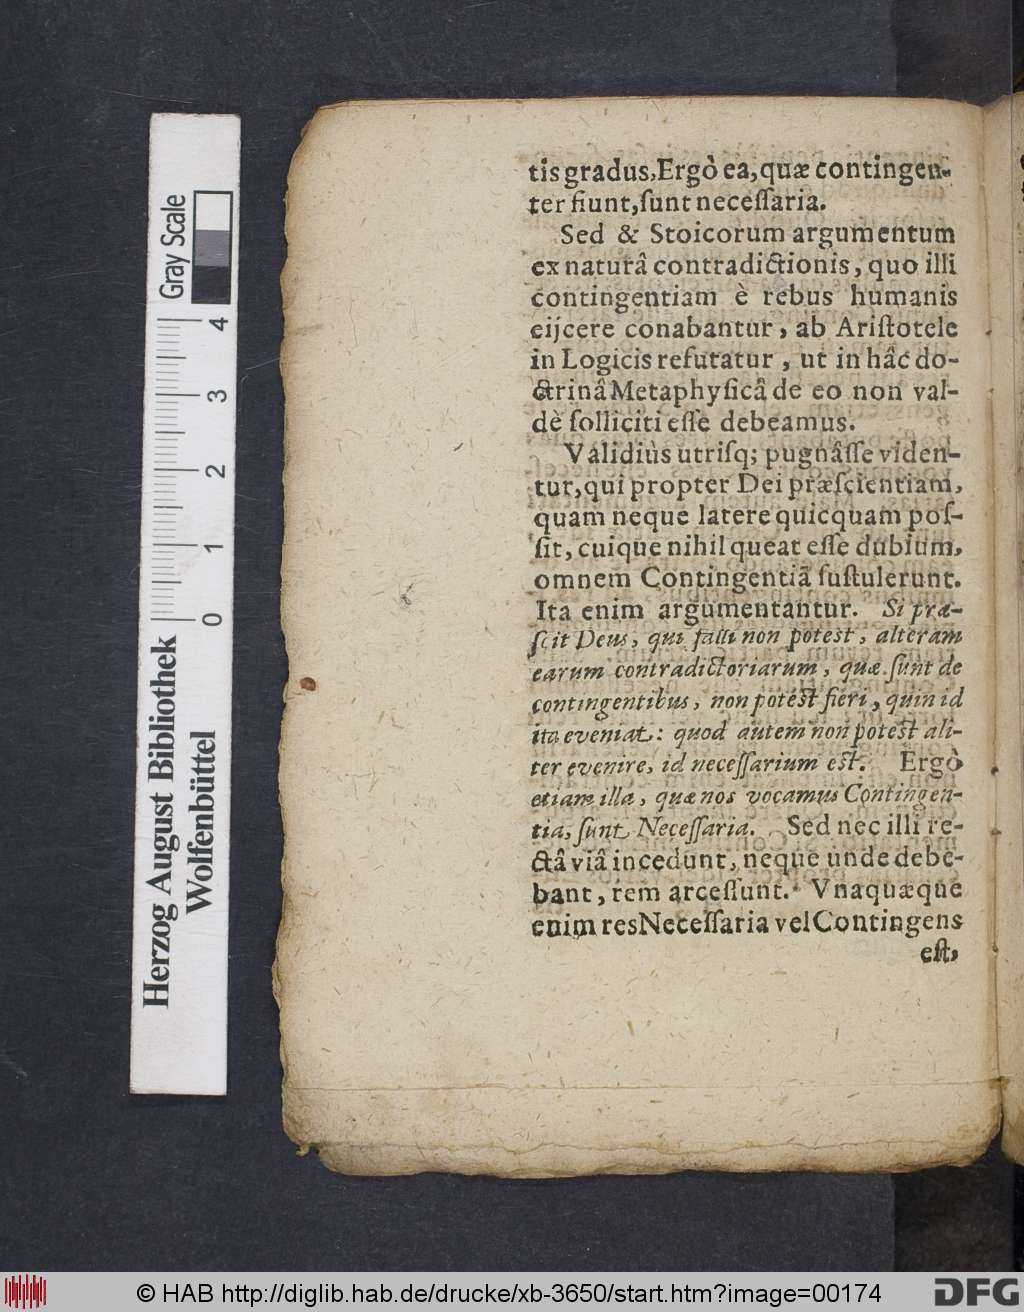 tis gradus, Ergò ea, quæ contingen-
ter fiunt, ſunt neceſſaria.
Sed & Stoicorum argumentum
ex naturâ contradictionis, quo illi
contingentiam è rebus humanis
eijcere conabantur, ab Ariſtotele
in Logicis refutatur, ut in hâc do-
ctrinâ Metaphyſicâ de eo non val-
dè ſolliciti eſſe debeamus.
Validiùs utriſq; pugnâſſe viden-
tur, qui propter Dei præſcientiam,
quam neque latere quicquam poſ-
ſit, cuique nihil queat eſſe dubium,
omnem Contingentiã ſuſtulerunt.
Ita enim argumentantur. Si præ-
ſcit Deus, qui falli non poteſt, alteram
earum contradictoriarum, quæ ſunt de
contingentibus, non poteſt fieri, quin id
ita eveniat: quod autem non poteſt ali-
ter evenire, id neceſſarium eſt. Ergò
etiam illa, quæ nos vocamus Contingen-
tia, ſunt Neceſſaria. Sed nec illi re-
ctâ viâ incedunt, neque unde debe-
bant, rem arceſſunt. Vnaquæque
enim res Neceſſaria vel Contingens
eſt,
Gray Scale
4
3
2
1
0
Herzog August Bibliothek
Wolfenbüttel
© HAB http://diglib.hab.de/drucke/xb-3650/start.htm?image=00174
DFG